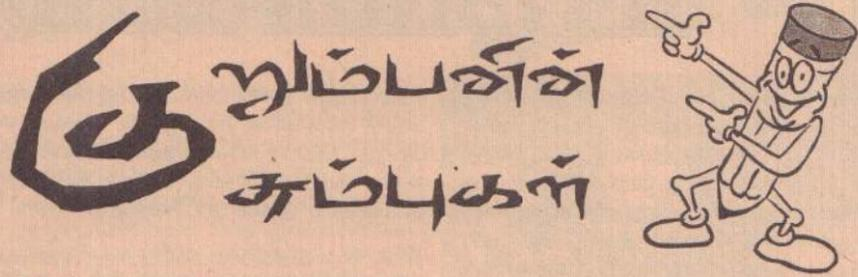 குறும்பனின்
சும்புகள்